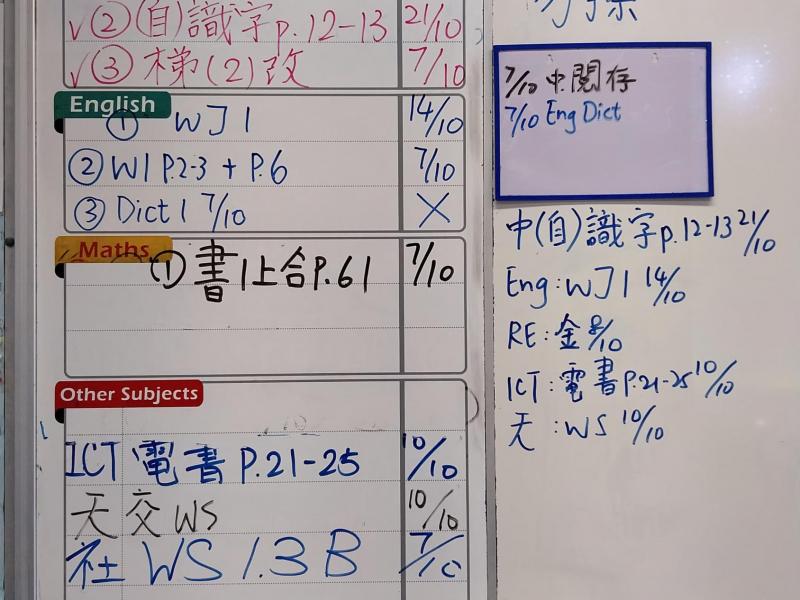 ✓②(自)識字p.12-13 21/10
✓③梯(2)改 7/10
English
① WJ1 14/10
② W1 P.2-3 + P.6 7/10
③ Dict 1 7/10 X
Maths
①書1上合P.61 7/10
Other Subjects
ICT 電書 P.21-25 10/10
天交WS 10/10
社 WS 1.3B 7/10
7/10 中閱存
7/10 Eng Dict
中(自)識字p.12-13 21/10
Eng:WJ1 14/10
RE:金 8/10
ICT:電書P.21-25 10/10
天:WS 10/10